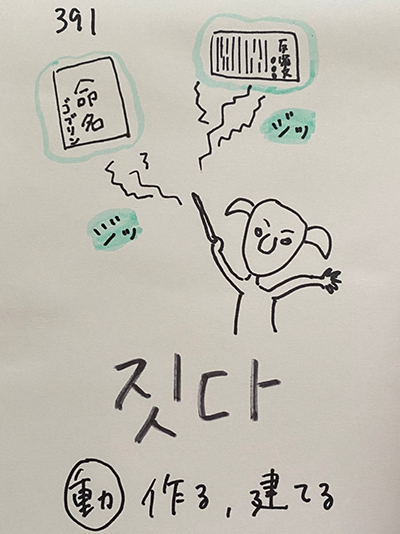 391
命名
ゴブリン
ジッ
ジッ
짓다
動 作る, 建てる